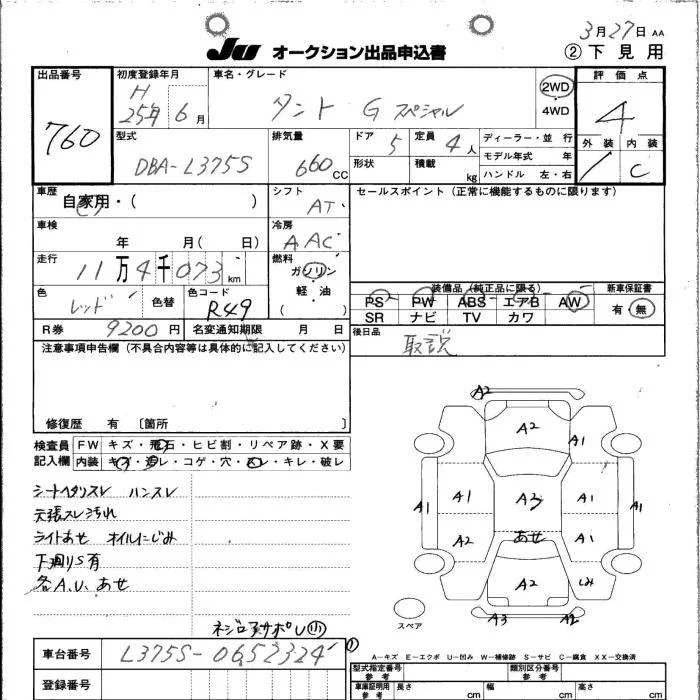 3月27日 AA
JU オークション出品申込書 ②下見用
出品番号 初度登録年月 車名・グレード 評価点
760
H 25年 6月 タント G スペシャル 2WD 4WD 4
型式 排気量 ドア 5 定員 4人 ディーラー・並 行 外装 内装
DBA-L375S 660CC 形状 積載 kg モデル年式 年 C
ハンドル 左・右
車歴 自家用・( ) シフト AT セールスポイント(正常に機能するものに限ります)
車検 年 月( 日) 冷房 AAC
走行 11万4千073km 燃料 ガソリン 軽・油 ( )
装備品(純正品に限る) 新車保証書
色 レッド 色替 色コード R49 PS PW ABS エアB AW 有・無
SR ナビ TV カワ
R券 9200円 名変通知期限 月 日 後日品 取説
注意事項申告欄(不具合内容等は具体的に記入してください)
修復歴 有 〔箇所 〕
検査員記入欄 FW キズ・飛石・ヒビ割・リペア跡・X要
内装 キズ・汚レ・コゲ・穴・スレ・キレ・破レ
シートヘタリスレ ハンスレ
天張スレ汚れ
ライトあせ オイルにじみ
下廻りS有
各A.U.あせ
A2
A2
A1
A1 A1 A3 A1 A1
A2 あせ A1
A2 しみ
A3 A2
スペア
A-キズ E-エクボ U-凹み W-補修跡 S-サビ C-腐食 XX-交換済
車台番号 L375S-0652324
登録番号
型式指定番号 参考 類別区分番号 参考
車庫証明用 参考 長さ cm 幅 cm 高さ cm